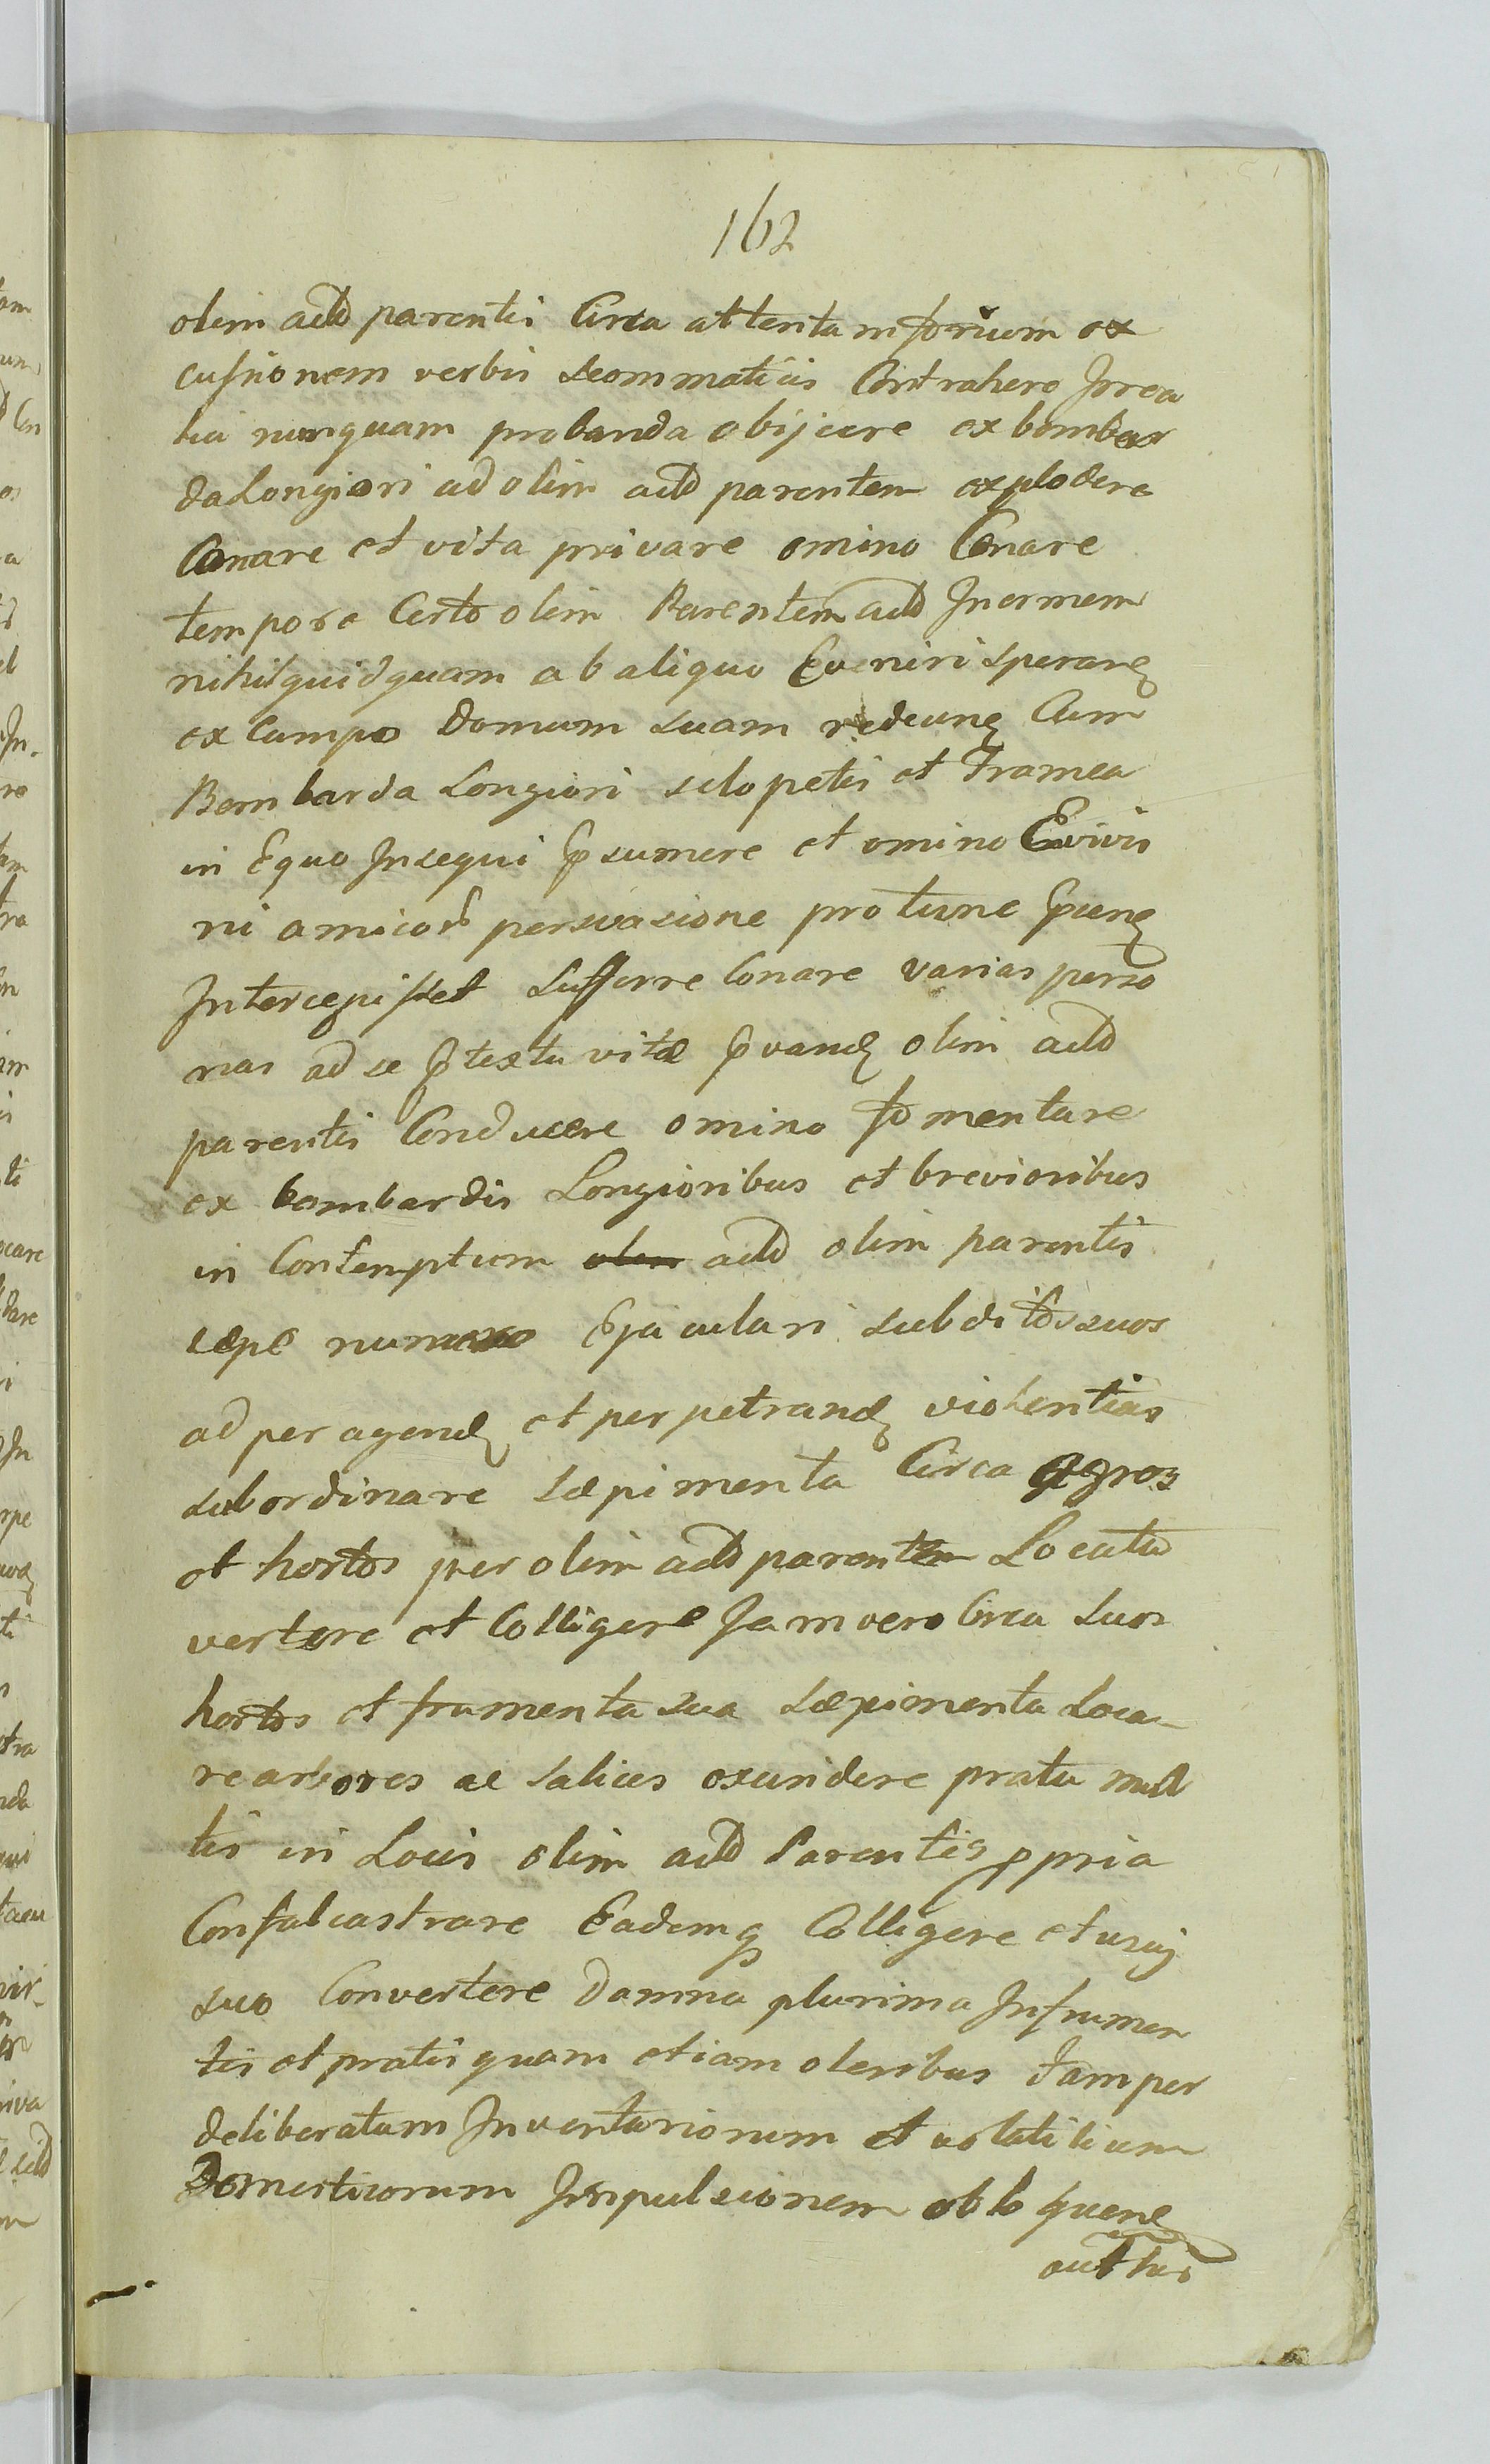 162
olim actd parentis Circa attenta nisorium ex
cussionem verbis scommaticis Contrahere Irrea
lia nunquam probanda obijcere ex bombar
da Longiori ad olim actd parentem explodere
Conare et vita privare omino Conare
tempore Certo olim Parentem actd Inermem
nihil quidquam ab aliquo Eveniri speranę
ex Campo Domum suam redeunę Cum
Bombarda Longiori sclopetis et Framea
in Equo Insequi p̃sumere et omino E vivis
ni amicor persvasione pro tunc p̃uenę
Intercepisset Sufferre Conare varias perso
nas ad se p̃textu vitæ p̃vandę olim actd
parentis Conducere omino fomentare
ex bombardis Longioribus et brevioribus
in Contemptum olim actd olim parentis
sæpe numero Ejaculari subditos suos
ad peragendę et perpetrandę violentias
subordinare Sæpimenta Circa agros
et hortos per olim actd parentem Locata
vertere et Colligere Jam vero Circa suos
hortos et frumenta sua Sæpimenta Loca-
re arbores ac Salices excindere prata mul
tis in Locis olim actd Parentis ppria
Confalcastrare Eademq Colligere et usuj
suo Convertere Damna plurima In frumen
tis et pratis quam etiam oleribus tam per
deliberatam Inventariorum et volatilium
Domesticorum Impulsionem ob loquene